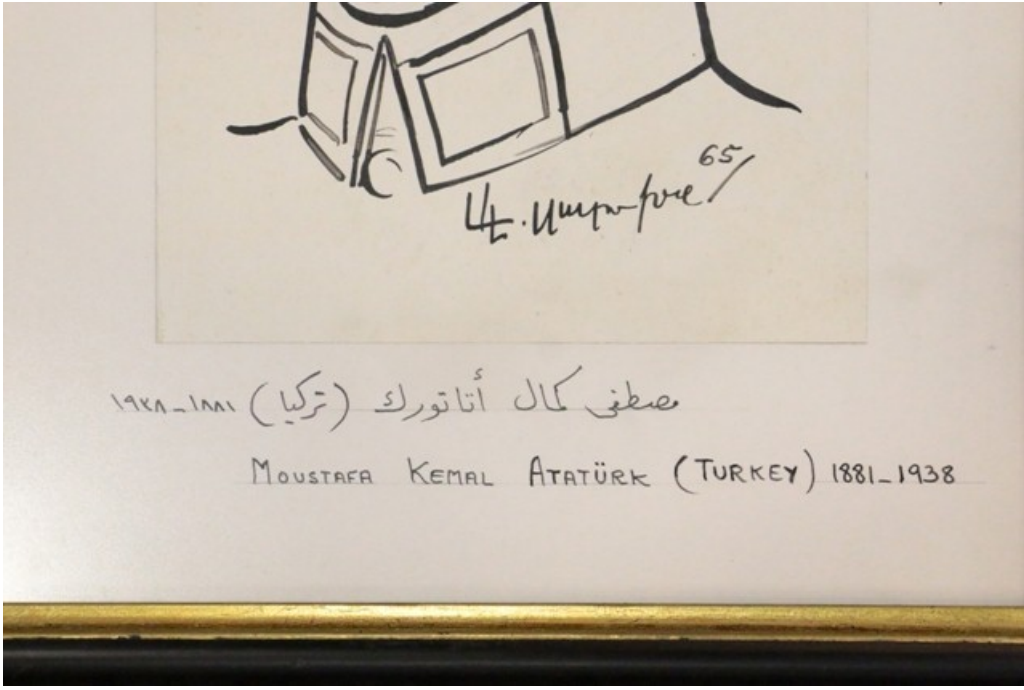 65/
مصطفى كمال أتاتورك (تركيا) ١٨٨١ - ١٩٣٨
MOUSTAFA KEMAL ATATÜRK (TURKEY) 1881-1938